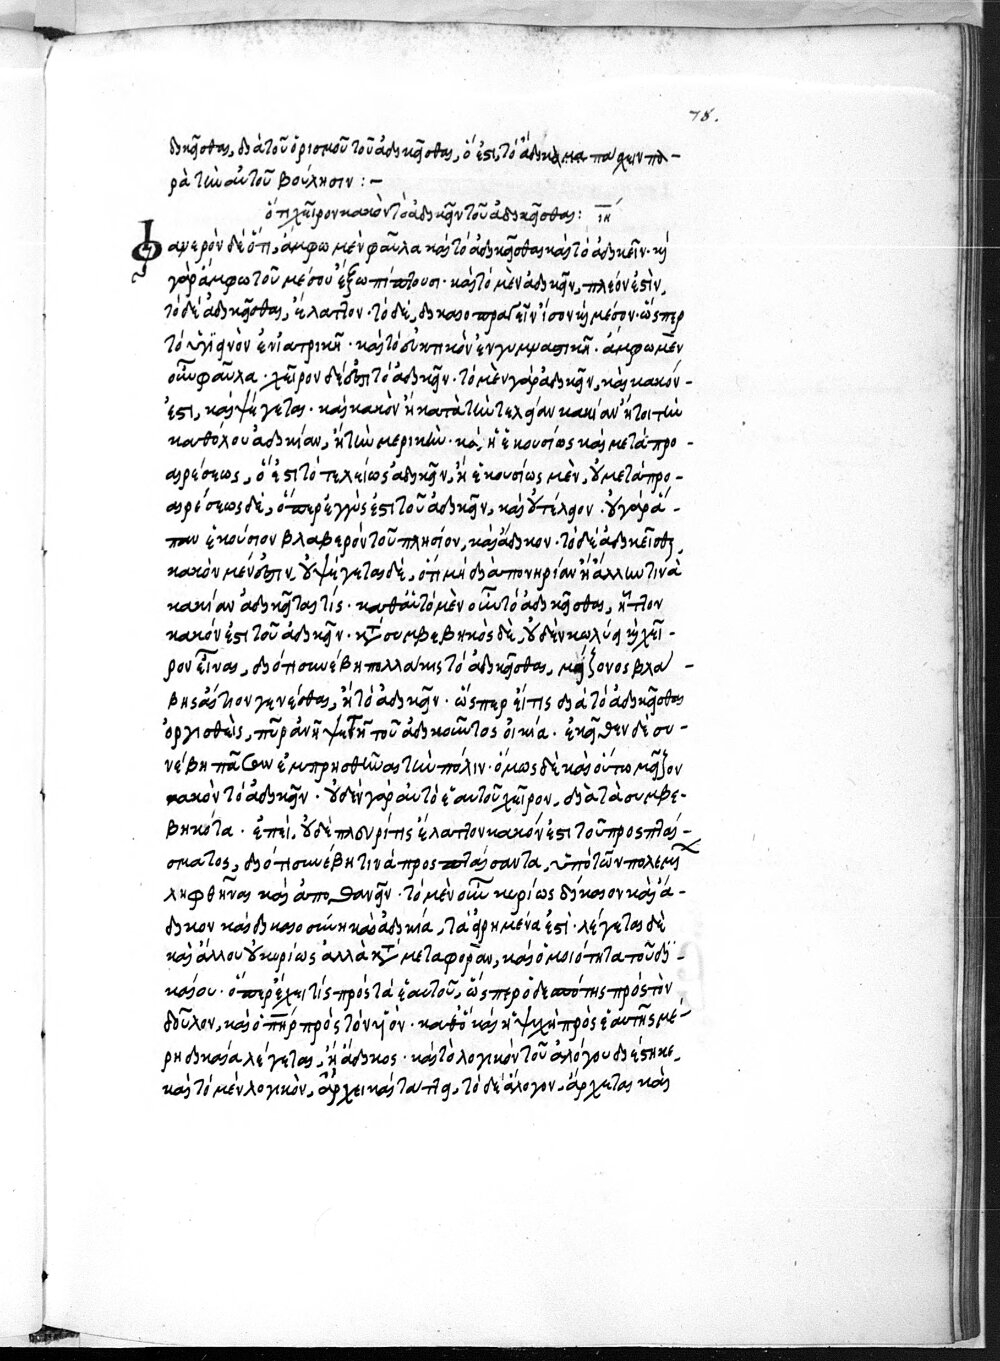 78.
δικεῖσθαι, διὰ τοῦ ὁρισμοῦ τοῦ ἀδικεῖσθαι, ὅ ἐστι, τὸ ἄδικα πάσχειν πα-
ρὰ τὴν αὐτοῦ βούλησιν : -
ὅτι χεῖρον κακὸν τὸ ἀδικεῖν τοῦ ἀδικεῖσθαι : ιη
Φανερὸν δὲ ὅτι, ἄμφω μὲν φαῦλα καὶ τὸ ἀδικεῖσθαι καὶ τὸ ἀδικεῖν · καὶ
γὰρ ἄμφω τοῦ μέσου ἔξω πίπτουσι · καὶ τὸ μὲν ἀδικεῖν, πλέον ἐστὶν,
τὸ δὲ ἀδικεῖσθαι, ἔλαττον · τὸ δὲ, δικαιοπραγεῖν ἴσον καὶ μέσον · ὥσπερ
τὸ ὑγιεινὸν ἐν ἰατρικῇ · καὶ τὸ εὐεκτικὸν ἐν γυμναστικῇ · ἄμφω μὲν
οὖν φαῦλα · χεῖρον δέ ἐστι τὸ ἀδικεῖν · τὸ μὲν γὰρ ἀδικεῖν, καὶ κακόν -
ἐστι, καὶ ψέγεται · καὶ κακὸν ἢ κατὰ τὴν τελείαν κακίαν ἤτοι τὴν
καθόλου ἀδικίαν, ἢ τὴν μερικὴν · καὶ, ἢ ἑκουσίως καὶ μετὰ προ -
αιρέσεως, ὅ ἐστι τὸ τελείως ἀδικεῖν, ἢ ἑκουσίως μὲν, οὐ μετὰ προ -
αιρέσεως δὲ, ὅπερ ἐγγύς ἐστι τοῦ ἀδικεῖν, καὶ οὐ τέλειον · οὐ γὰρ ἅ -
παν ἑκούσιον βλαβερὸν τοῦ πλησίον, καὶ ἄδικον · τὸ δὲ ἀδικεῖσθαι,
κακὸν μέν ἐστιν, οὐ ψέγεται δὲ, ὅτι μὴ διὰ πονηρίαν ἢ ἄλλην τινὰ
κακίαν ἀδικεῖταί τις · καθ' αὑτὸ μὲν οὖν τὸ ἀδικεῖσθαι, ἧττον
κακόν ἐστι τοῦ ἀδικεῖν · κατὰ συμβεβηκὸς δὲ, οὐδὲν κωλύει καὶ χεῖ -
ρον εἶναι, διότι συνέβη πολλάκις τὸ ἀδικεῖσθαι, μείζονος βλά -
βης αἴτιον γενέσθαι, ἢ τὸ ἀδικεῖν · ὥσπερ εἴ τις διὰ τὸ ἀδικεῖσθαι
ὀργισθεὶς, πῦρ ἀνῆψε τῇ τοῦ ἀδικοῦντος οἰκίᾳ · ἐκεῖθεν δὲ συ -
νέβη πᾶσαν ἐμπρησθῆναι τὴν πόλιν · ὅμως δὲ καὶ οὕτω μεῖζον
κακὸν τὸ ἀδικεῖν · οὐδὲν γὰρ αὐτὸ ἑαυτοῦ χεῖρον, διὰ τὰ συμβε -
βηκότα · ἐπεὶ, οὐδὲ πλευρῖτις ἔλαττον κακόν ἐστι τοῦ προσπταί -
σματος, διότι συνέβη τινὰ προσπταίσαντα, ὑπὸ τῶν πολεμίων
ληφθῆναι καὶ ἀποθανεῖν · τὸ μὲν οὖν κυρίως δίκαιον καὶ ἄ -
δικον καὶ δικαιοσύνη καὶ ἀδικία, τὰ εἰρημένα ἐστὶ · λέγεται δὲ
καὶ ἄλλο οὐ κυρίως ἀλλὰ κατὰ μεταφορὰν, καὶ ὁμοιότητα τοῦ δι -
καίου · ὅπερ ἔχει τὶς πρὸς τὰ ἑαυτοῦ, ὥσπερ ὁ δεσπότης πρὸς τὸν
δοῦλον, καὶ ὁ πηρ πρὸς τὸν υἱόν · καθὸ καὶ ἡ ψυχὴ πρὸς ἑαυτῆς μέ -
ρη δικαία λέγεται, ἢ ἄδικος · καὶ τὸ λογικὸν τοῦ ἀλόγου διέστηκε,
καὶ τὸ μὲν λογικὸν, ἄρχει καὶ τάττει, τὸ δὲ ἄλογον, ἄρχεται καὶ